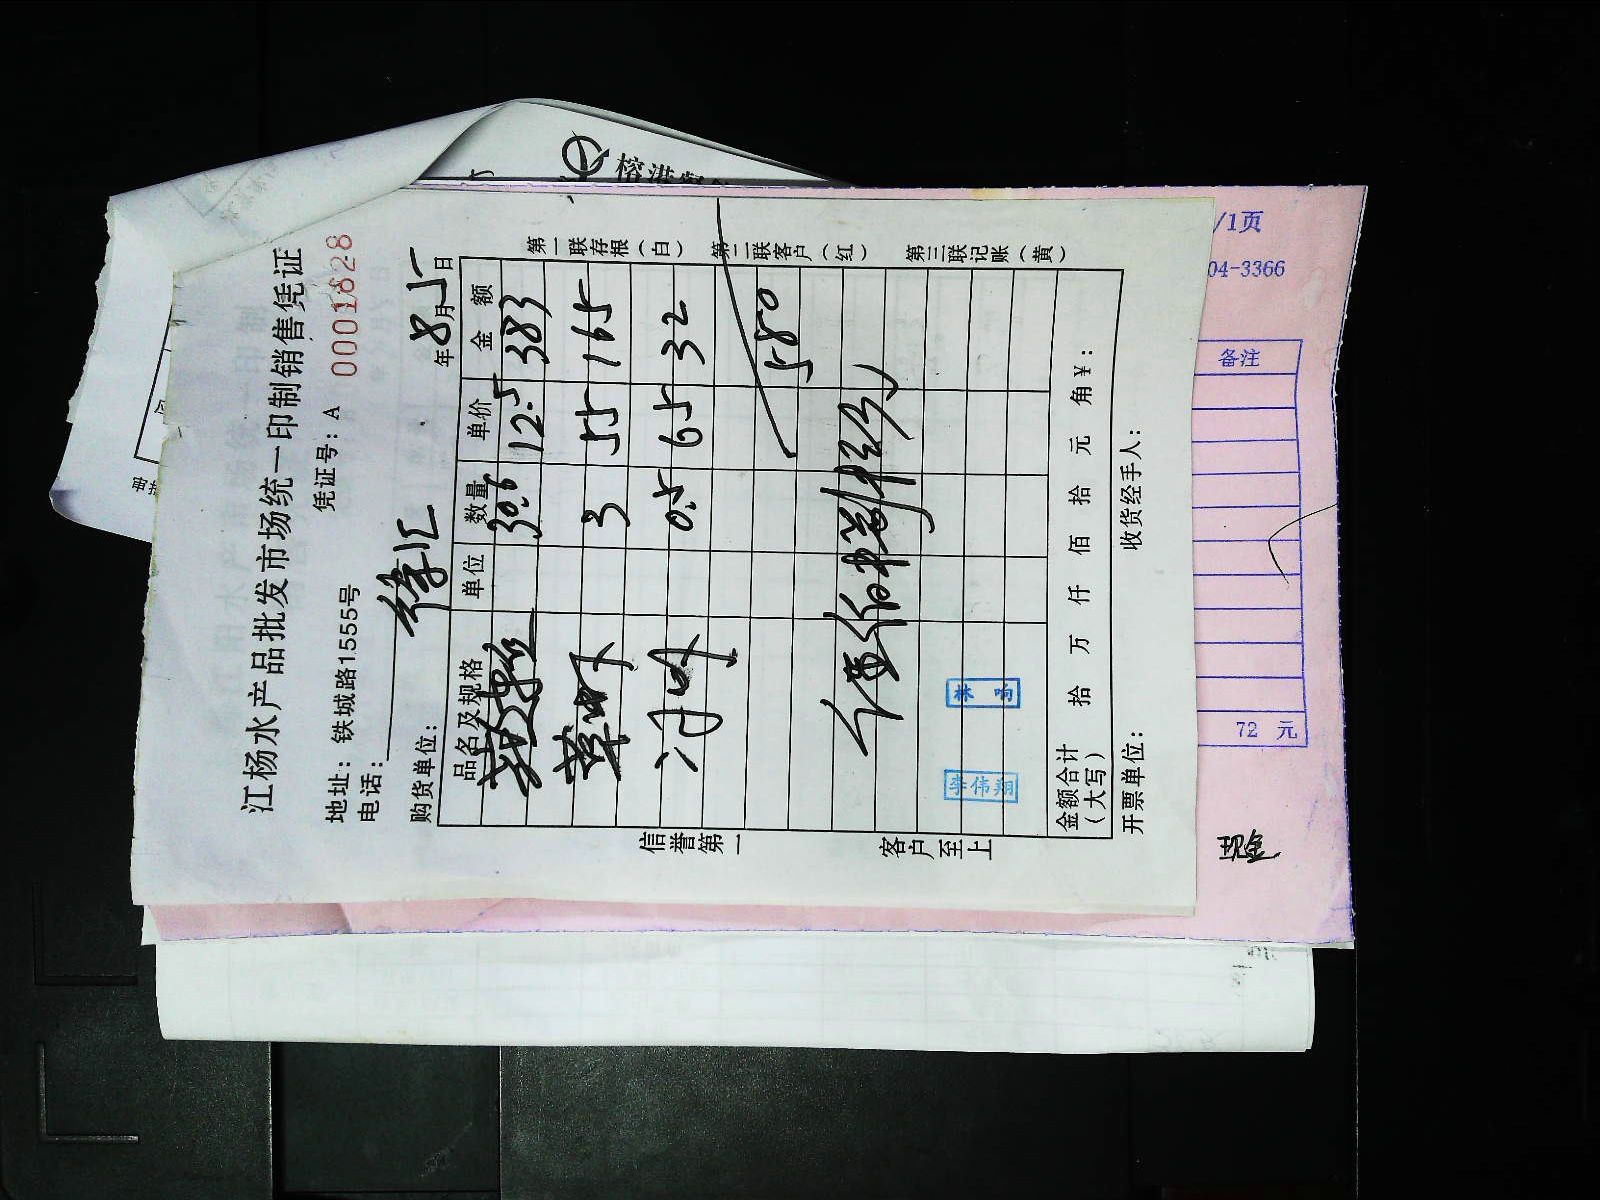 江杨水产品批发市场统一印制销售凭证
地址：铁城路15555号 凭证号：A 0001828
电话：
购货单位： 徐汇 年 8 月 5 日
品名及规格 单位 数量 单价 金额
30.6 12.5 383
草虾 3 55 165
河虾 0.5 65 32
580
林
李伟翔
金额合计（大写） 拾 万 仟 佰 拾 元 角 ¥：
开票单位： 收货经手人：
第一联存根（白） 第二联客户（红） 第三联记账（黄）
信誉第一 客户至上
/1页
04-3366
备注
72 元
现金
榕港